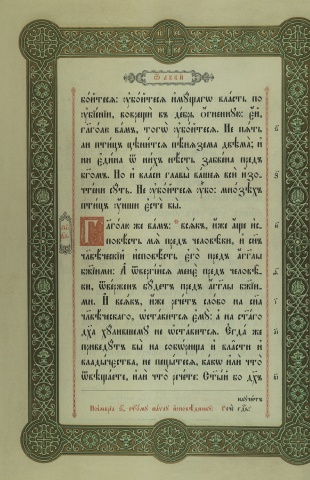 ѿ лꙋки
бо́йтесѧ: ᲂу҆бо́йтесѧ и҆мꙋ́щагѡ вла́сть по
ᲂу҆бїе́нїи, воврещѝ въ де́брь ѻ҆́гненнꙋю: є҆́й,
гл҃го́лю ва́мъ, тогѡ̀ ᲂу҆бо́йтесѧ. Не пѧ́ть
ли пти́цъ цѣни́тсѧ пѣ́нѧзема двѣма̀; и҆
ни є҆ди́на ѿ ни́хъ нѣ́сть забве́на пред̾
бг҃омъ. Но и҆ вла́си главы̀ ва́шеѧ всѝ и҆зо-
чте́ни сꙋ́ть. Не ᲂу҆бо́йтесѧ ᲂу҆̀бо: мно́зѣхъ
пти́цъ ᲂу҆́нши є҆стѐ вы̀.
Глаго́лю же ва́мъ: всѧ́къ, и҆́же а҆́ще и҆с-
повѣ́сть мѧ̀ пред̾ человѣ́ки, и҆ сн҃ъ
чл҃вѣ́ческїй и҆сповѣ́сть є҆го̀ пред̾ а҆́гг҃лы
бж҃їими: А҆ ѿве́ргійсѧ менє̀ пред̾ человѣ́-
ки, ѿве́рженъ бꙋ́детъ пред̾ а҆́гг҃лы бж҃їи-
ми. И҆ всѧ́къ, и҆́же рече́тъ сло́во на сн҃а
чл҃вѣ́ческаго, ѡ҆ста́витсѧ є҆мꙋ̀: а҆ на ст҃а́го
дх҃а хꙋ́лившемꙋ не ѡ҆ста́витсѧ. Е҆гда́ же
приведꙋ́тъ вы̀ на собѡ́рища и҆ вла̑сти и҆
влады́чєства, не пецы́тесѧ, ка́кѡ и҆лѝ что̀
ѿвѣща́ете, и҆лѝ что̀ рече́те: Ст҃ы́й бо дх҃ъ
наꙋчи́тъ